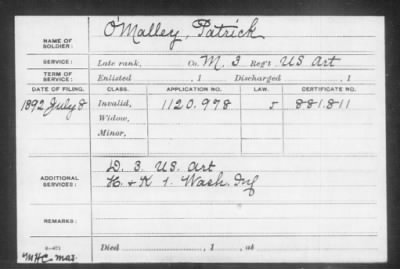 NAME OF SOLDIER: O'Malley, Patrick
SERVICE: Late rank, Co. M. 3 Reg't US Art
TERM OF SERVICE: Enlisted , 1 Discharged , 1
DATE OF FILING. CLASS. APPLICATION NO. LAW. CERTIFICATE NO.
1892 July 8 Invalid, 1120.978 5 881.811
Widow,
Minor,
ADDITIONAL SERVICES: D. 3. US. Art
H. & K 1. Wash. Inf
REMARKS:
Died , 1 , at
MHC